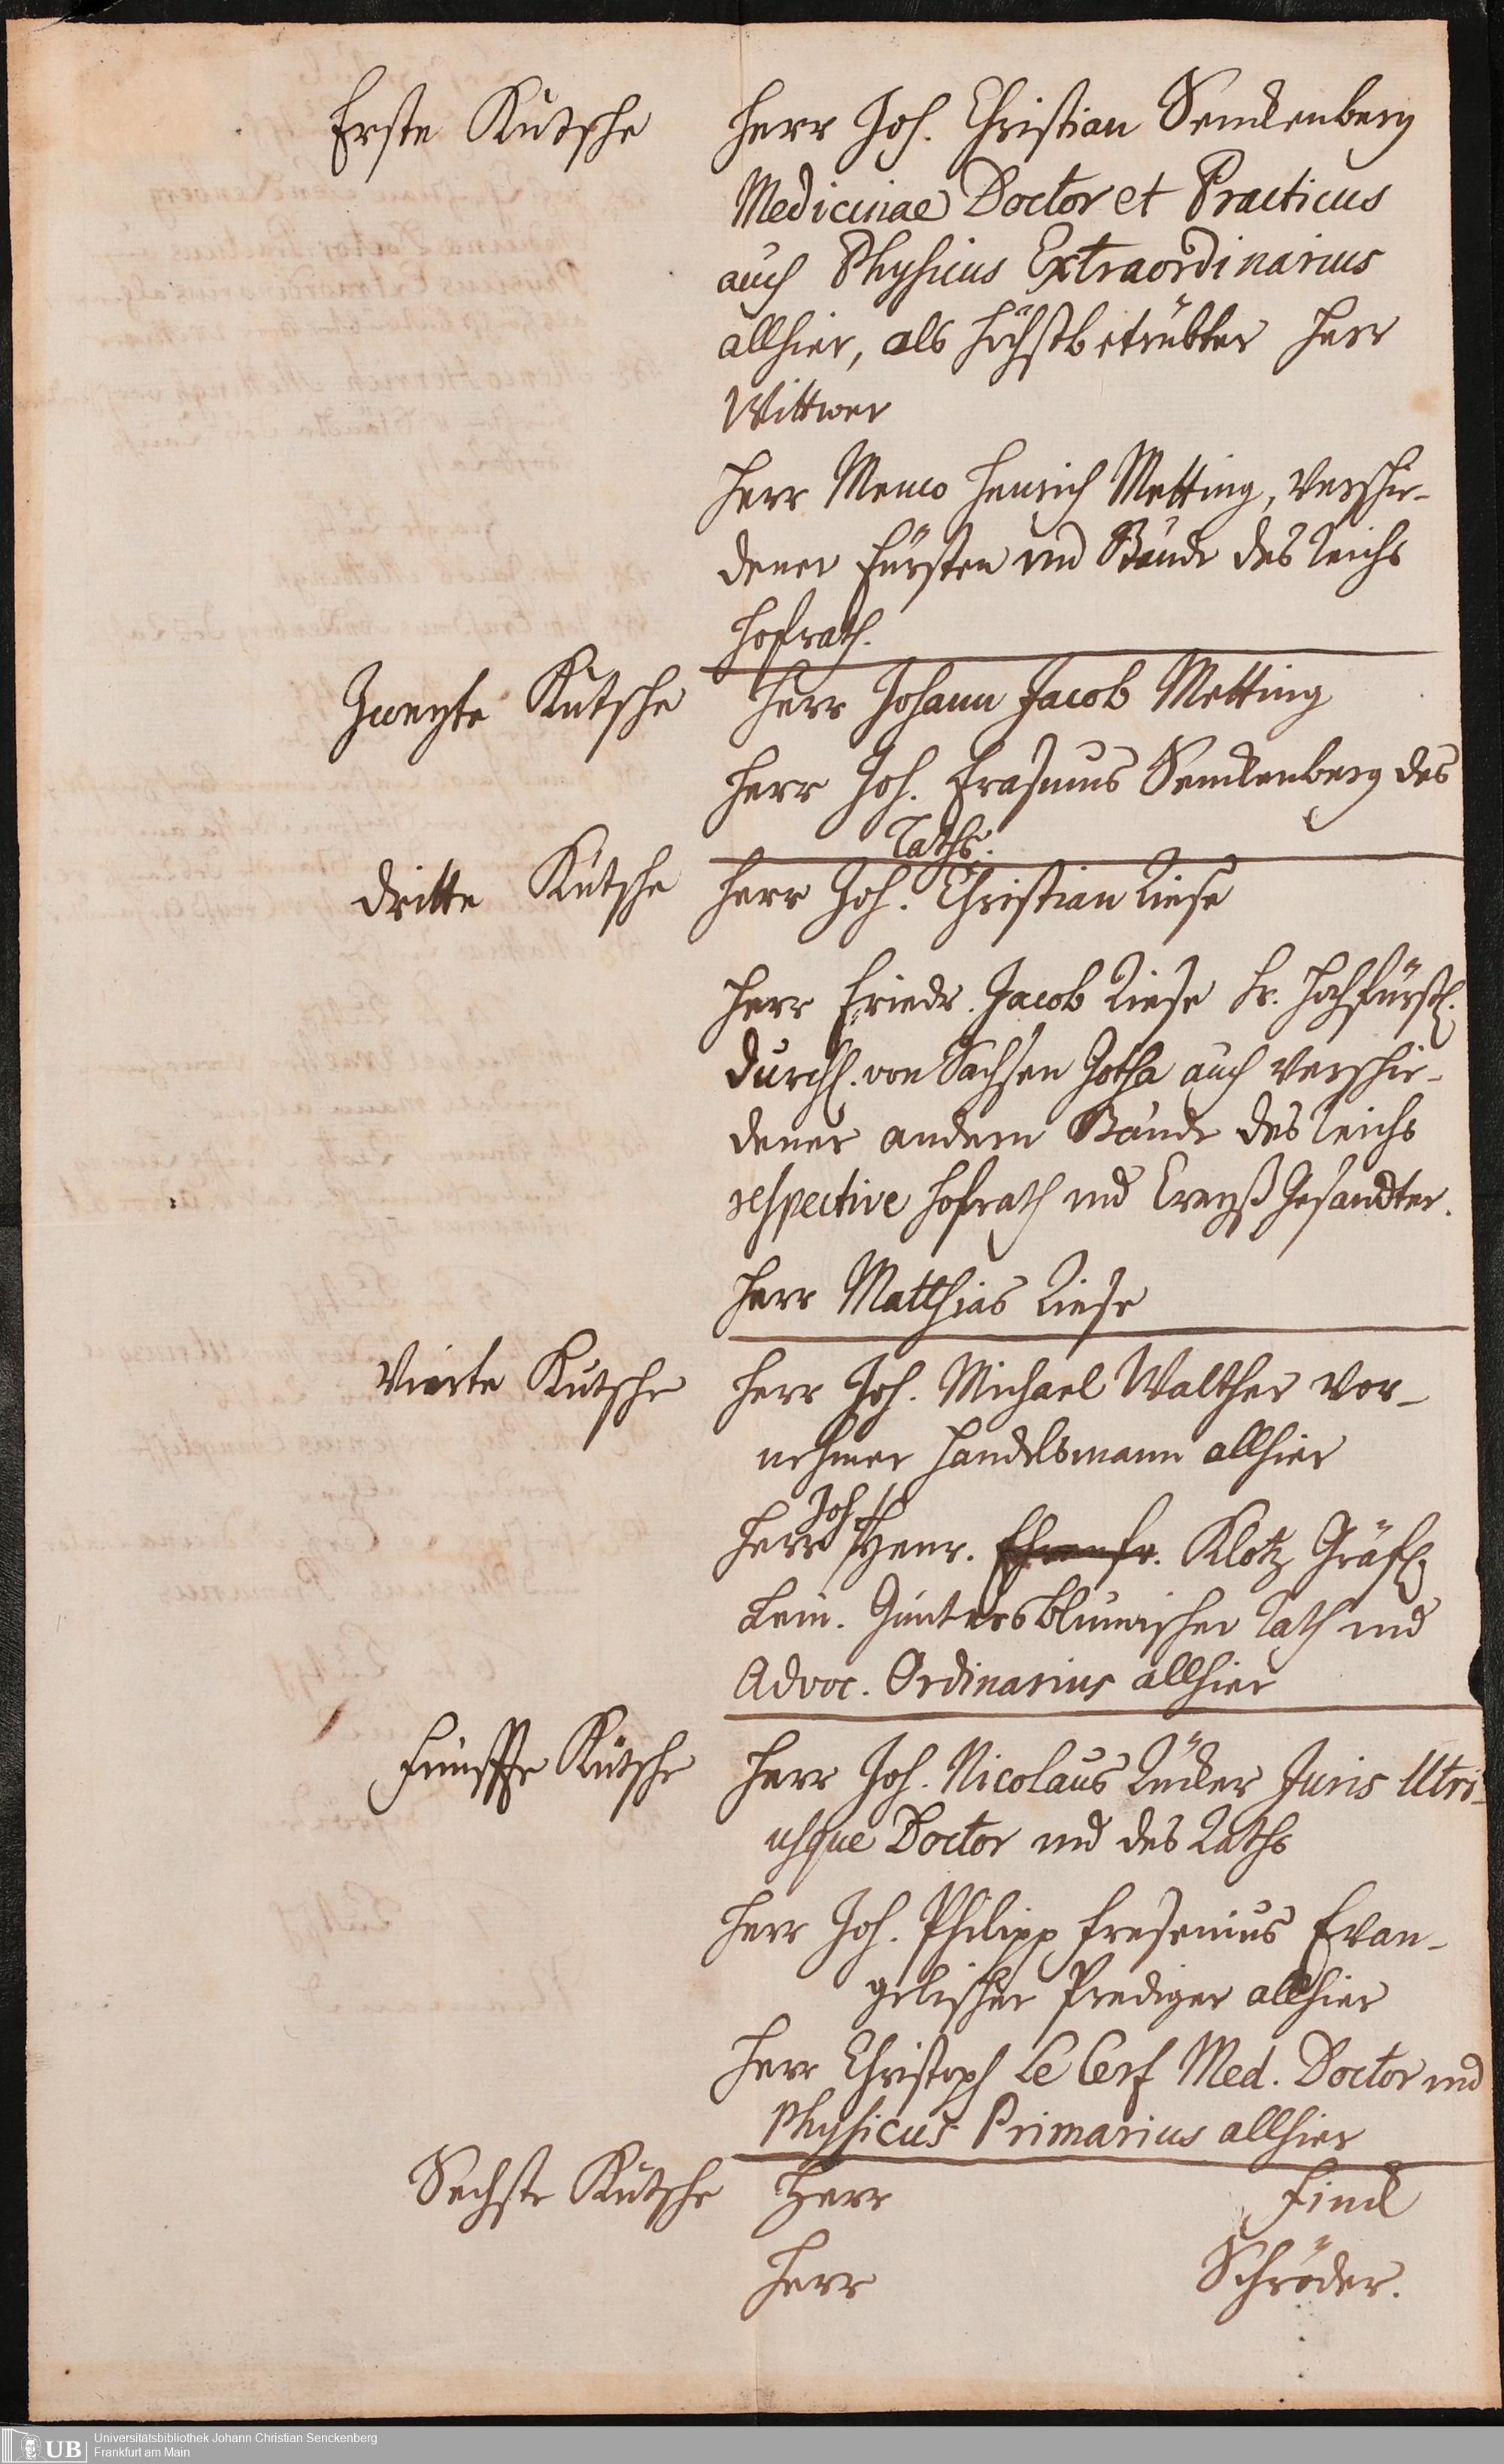 Erste Kutsche Herr Joh. Christian Senckenberg
Medicinae Doctor et Practicus
auch Physicus Extraordinarius
allhier, als höchstbetrübter Herr
Wittwer
Herr Menco Henrich Metting, verschie-
dener Fürsten und Stände des Reichs
Hofrath.
Zweyte Kutsche Herr Johann Jacob Metting
Herr Joh. Erasmus Senckenberg des
Raths.
dritte Kutsche Herr Joh. Christian Riese
Herr Friedr. Jacob Riese Sr. Hochfürstl.
Durchl. von Sachsen Gotha auch verschie-
dener andern Stände des Reichs
respective Hofrath und Creyß Gesandter.
Herr Matthias Riese
Vierte Kutsche Herr Joh. Michael Walther vor-
nehmer Handelsmann allhier
Herr Joh. Henr. Ehrenfr. Klotz Gräfl.
Lein. Guntersblumischer Rath und
Advoc. Ordinarius allhier
Fünffte Kutsche Herr Joh. Nicolaus Rücker Juris Utri-
usque Doctor und des Raths
Herr Joh. Philipp Fresenius Evan-
gelischer Prediger allhier
Herr Christoph Le Cerf Med. Doctor und
Physicus Primarius allhier
Sechste Kutsche Herr Finck
Herr Schröder.
UB Universitätsbibliothek Johann Christian Senckenberg
Frankfurt am Main